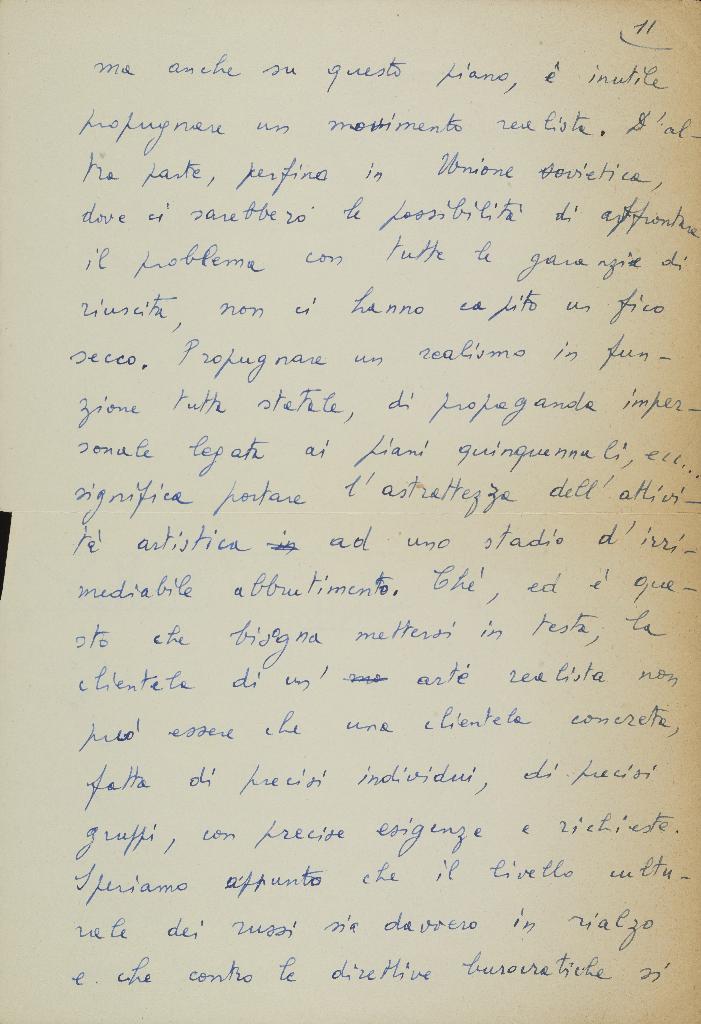 11
ma anche su questo piano, è inutile
propugnare un movimento realista. D'al-
tra parte, perfino in Unione sovietica,
dove ci sarebbero le possibilità di affrontare
il problema con tutte le garanzie di
riuscita, non ci hanno capito un fico
secco. Propugnare un realismo in fun-
zione tutta statale, di propaganda imper-
sonale legata ai piani quinquennali, ecc...
significa portare l'astrattezza dell'attivi-
tà artistica in ad uno stadio d'irri-
mediabile abbrutimento. Ché, ed è que-
sto che bisogna mettersi in testa, la
clientela di un' arte realista non
può essere che una clientela concreta,
fatta di precisi individui, di precisi
gruppi, con precise esigenze e richieste.
Speriamo appunto che il livello cultu-
rale dei russi sia davvero in rialzo
e che contro le direttive burocratiche si